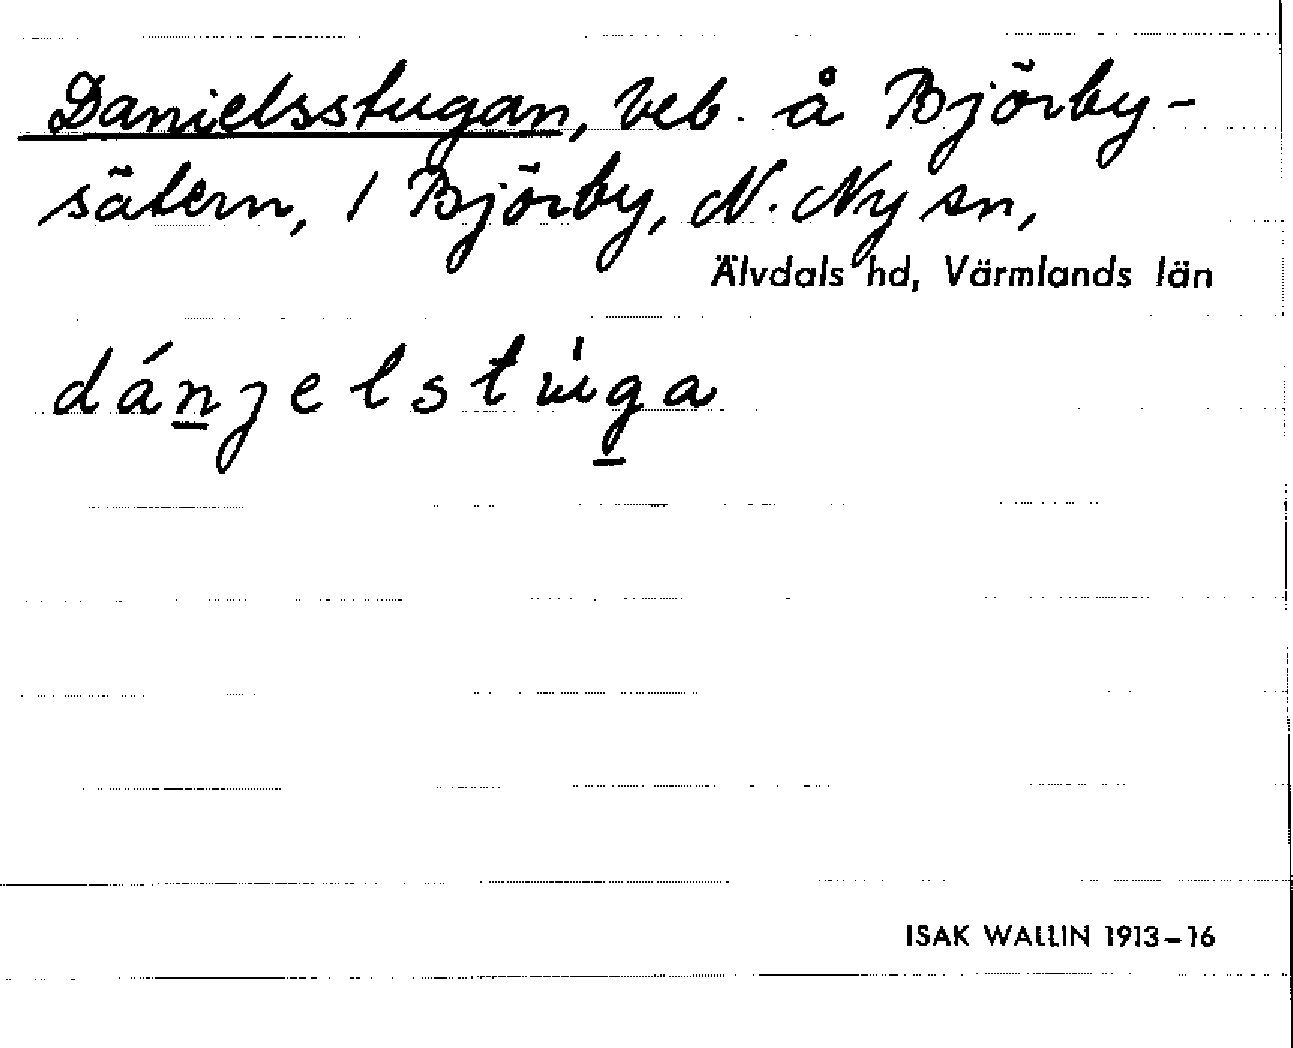 Danielsstugan, beb. å Björby-
sätern, 1 Björby, N. Ny sn,
Älvdals hd, Värmlands län
dán̲jelstu̍g̲a
ISAK WALLIN 1913–16